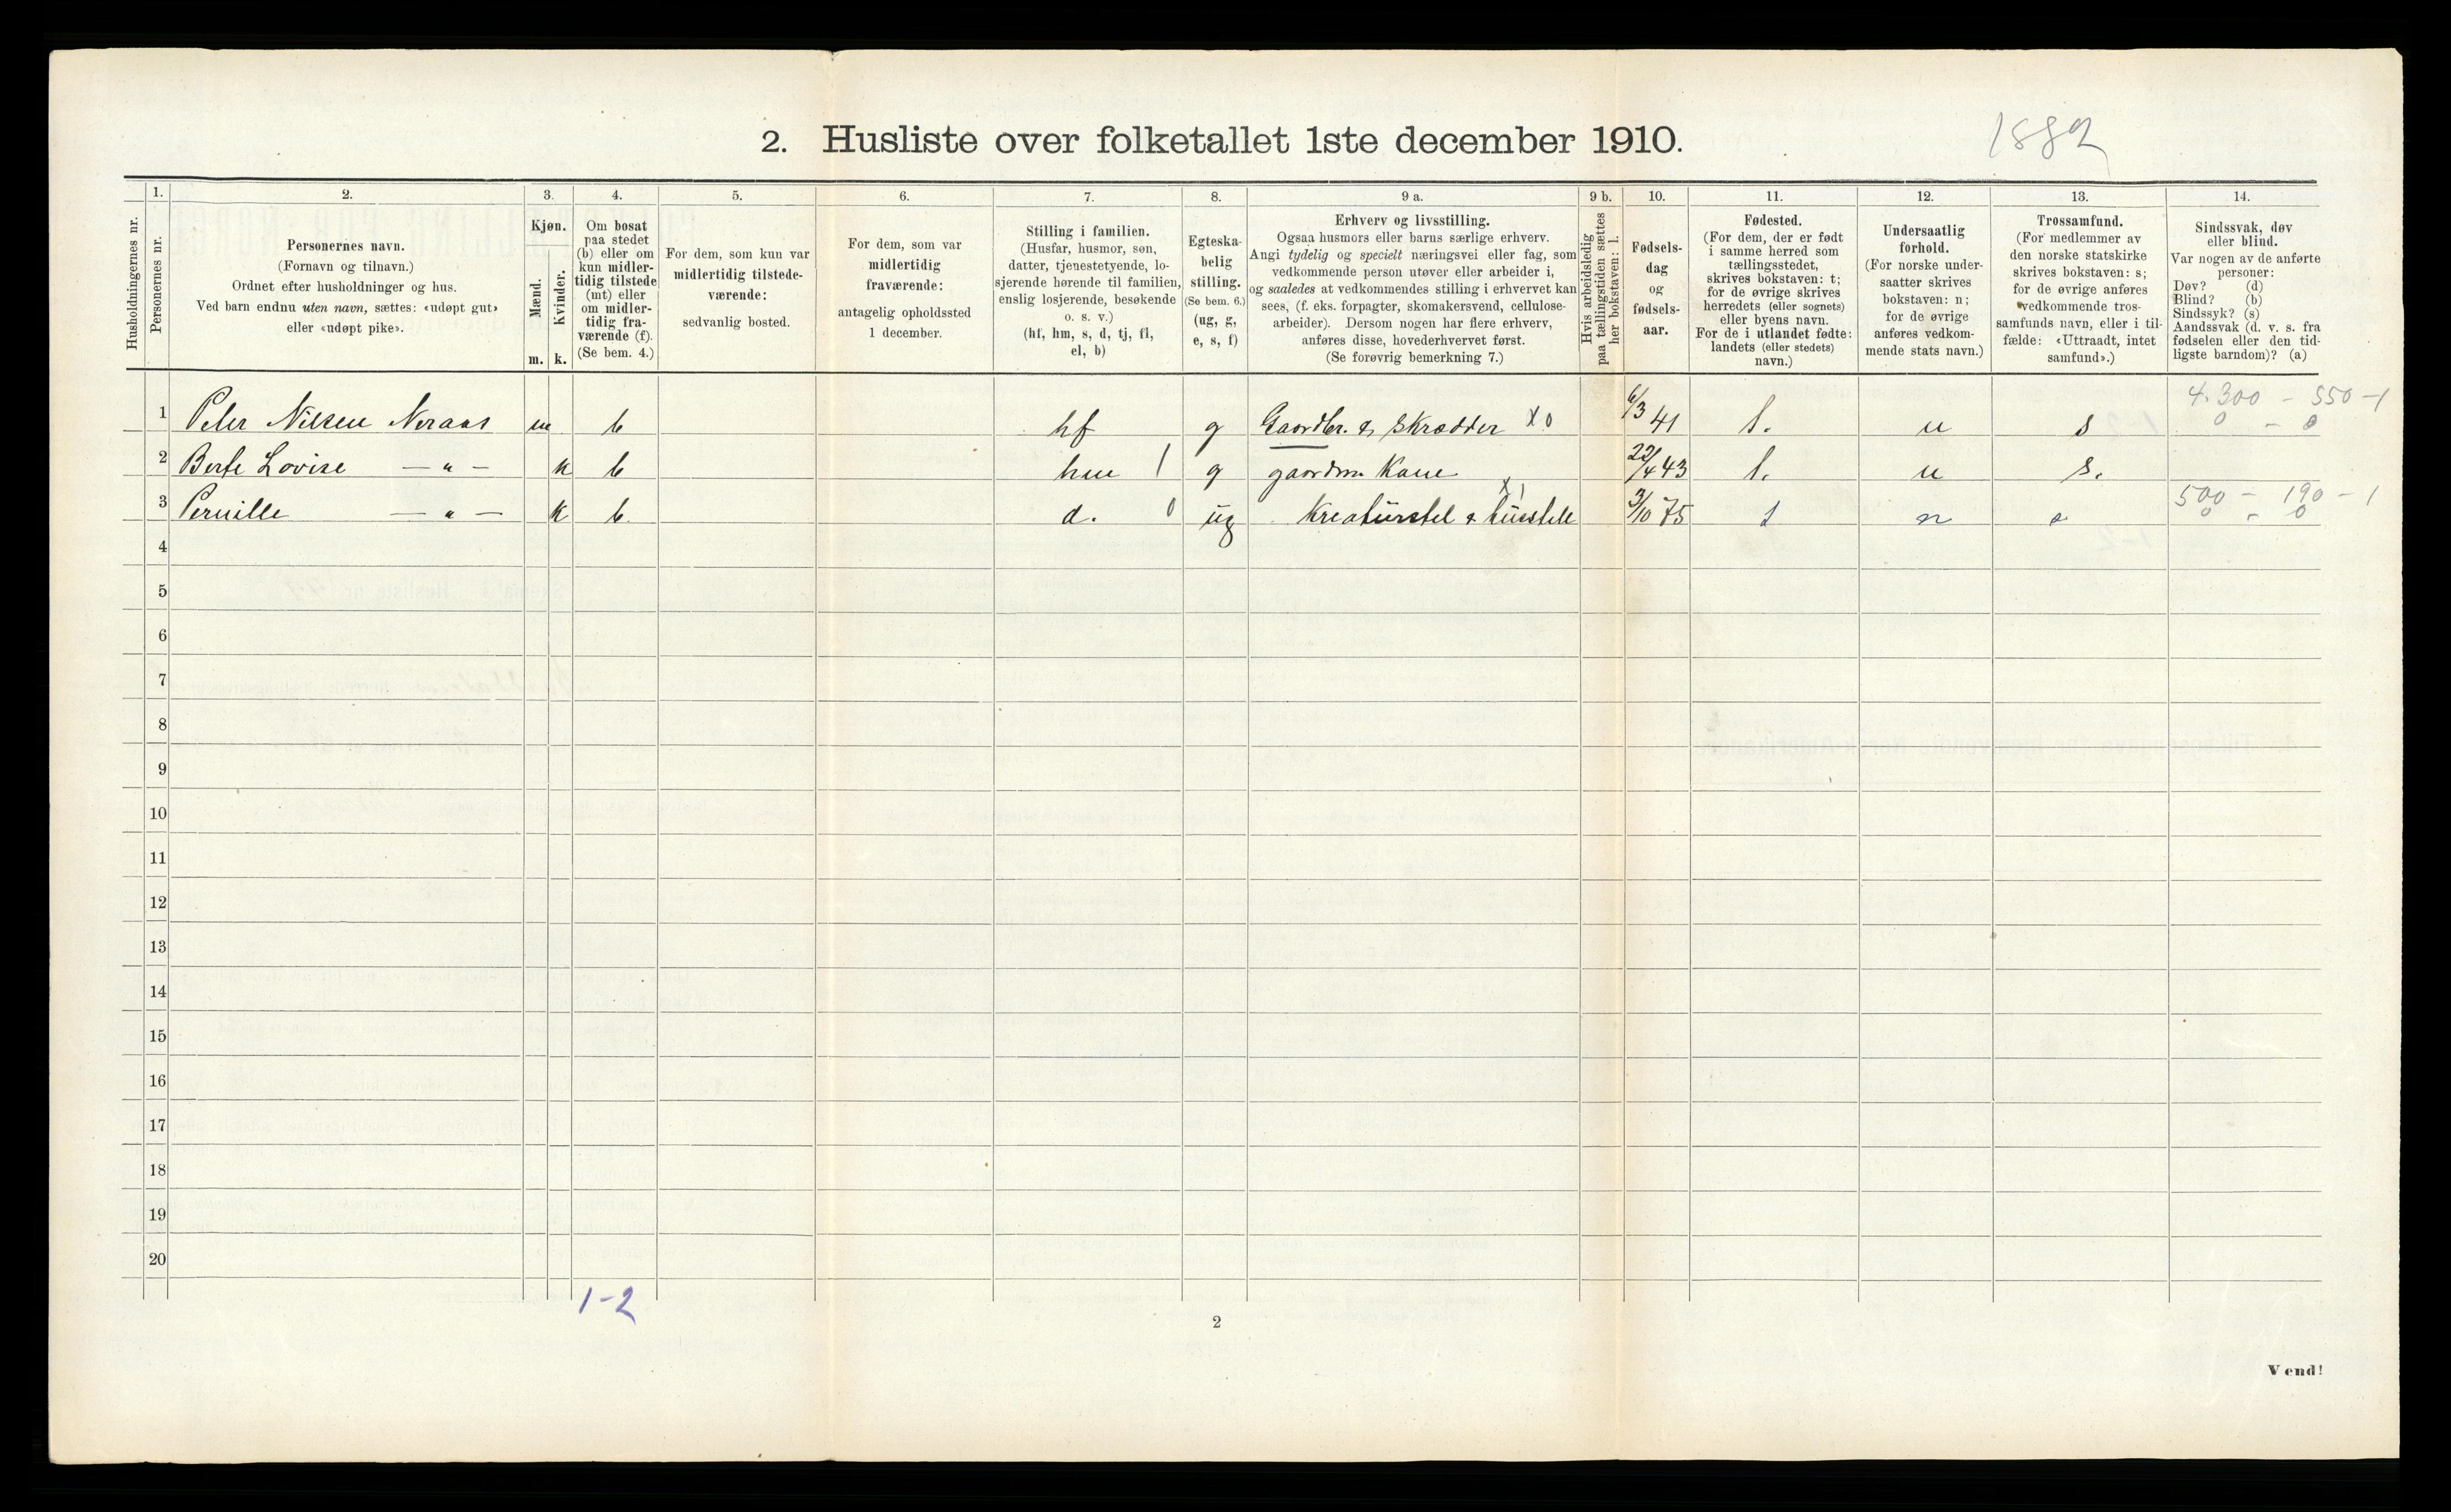 2. Husliste over folketallet 1ste december 1910.
1882
Husholdningernes nr.
1. Personernes nr.
2. Personernes navn.
(Fornavn og tilnavn.)
Ordnet efter husholdninger og hus.
Ved barn endnu uten navn, sættes: «udøpt gut»
eller «udøpt pike».
3. Kjøn.
Mænd. Kvinder.
m. k.
4. Om bosat
paa stedet
(b) eller om
kun midler-
tidig tilstede
(mt) eller
om midler-
tidig fra-
værende (f).
(Se bem. 4.)
5. For dem, som kun var
midlertidig tilstede-
værende:
sedvanlig bosted.
6. For dem, som var
midlertidig
fraværende:
antagelig opholdssted
1 december.
7. Stilling i familien.
(Husfar, husmor, søn,
datter, tjenestetyende, lo-
sjerende hørende til familien,
enslig losjerende, besøkende
o. s. v.)
(hf, hm, s, d, tj, fl,
el, b)
8. Egteska-
belig
stilling.
(Se bem. 6.)
(ug, g,
e, s, f)
9 a. Erhverv og livsstilling.
Ogsaa husmors eller barns særlige erhverv.
Angi tydelig og specielt næringsvei eller fag, som
vedkommende person utøver eller arbeider i,
og saaledes at vedkommendes stilling i erhvervet kan
sees, (f. eks. forpagter, skomakersvend, cellulose-
arbeider). Dersom nogen har flere erhverv,
anføres disse, hovederhvervet først.
(Se forøvrig bemerkning 7.)
9 b. Hvis arbeidsledig
paa tællingstiden sættes
her bokstaven: l.
10. Fødsels-
dag
og
fødsels-
aar.
11. Fødested.
(For dem, der er født
i samme herred som
tællingsstedet,
skrives bokstaven: t;
for de øvrige skrives
herredets (eller sognets)
eller byens navn.
For de i utlandet fødte:
landets (eller stedets)
navn.)
12. Undersaatlig
forhold.
(For norske under-
saatter skrives
bokstaven: n;
for de øvrige
anføres vedkom-
mende stats navn.)
13. Trossamfund.
(For medlemmer av
den norske statskirke
skrives bokstaven: s;
for de øvrige anføres
vedkommende tros-
samfunds navn, eller i til-
fælde: «Uttraadt, intet
samfund».)
14. Sindssvak, døv
eller blind.
Var nogen av de anførte
personer:
Døv? (d)
Blind? (b)
Sindssyk? (s)
Aandssvak (d. v. s. fra
fødselen eller den tid-
ligste barndom)? (a)
4.300 - 550 - 1
1 Peter Nilsen Neraas m b hf g Gaardbr. & Skrædder X0 6/3 41 t. n s 0 - 0
2 Berte Lovise — " — k b hm 1 g gaardm. Kone 22/4 43 t. n s.
X1 500 - 190 - 1
3 Pernille — " — k b. d. 0 ug Kreaturstel & husstell 3/10 75 t n s 0 - 0
4
5
6
7
8
9
10
11
12
13
14
15
16
17
18
19
20
1-2
2
Vend!